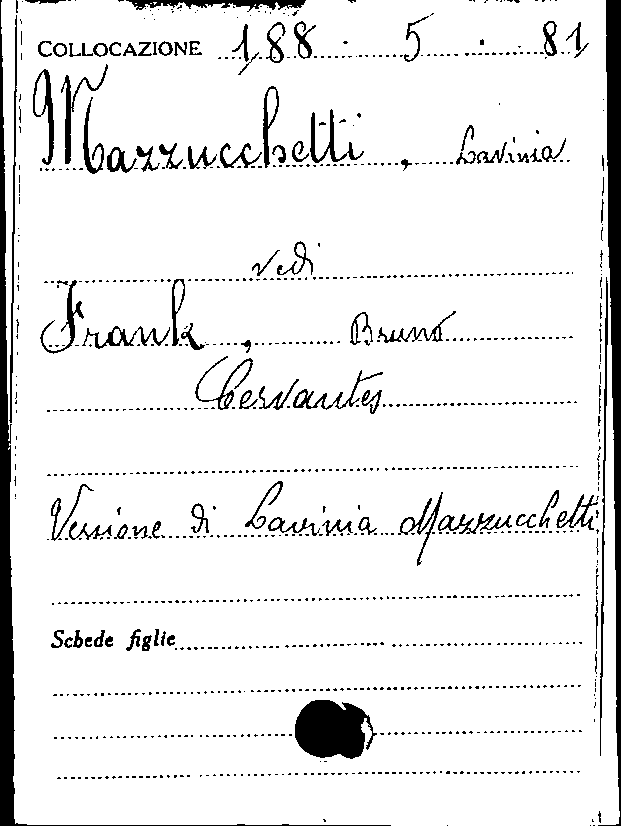 COLLOCAZIONE 188 · 5 · 81
Mazzucchetti, Lavinia
vedi
Frank, Bruno
Cervantes
Versione di Lavinia Mazzucchetti
Schede figlie